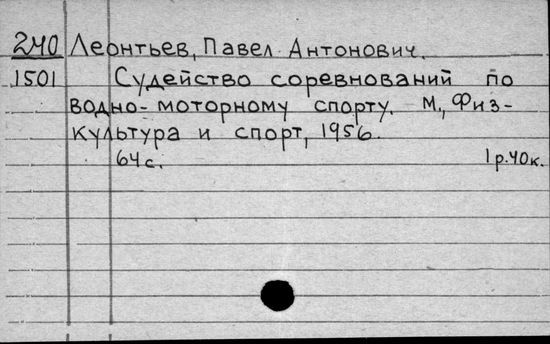 240 Леонтьев, Павел Антонович.
1501 Судейство соревнований по
водно-моторному спорту. М., Физ-
культура и спорт, 1956.
64 с. 1 р. 40 к.